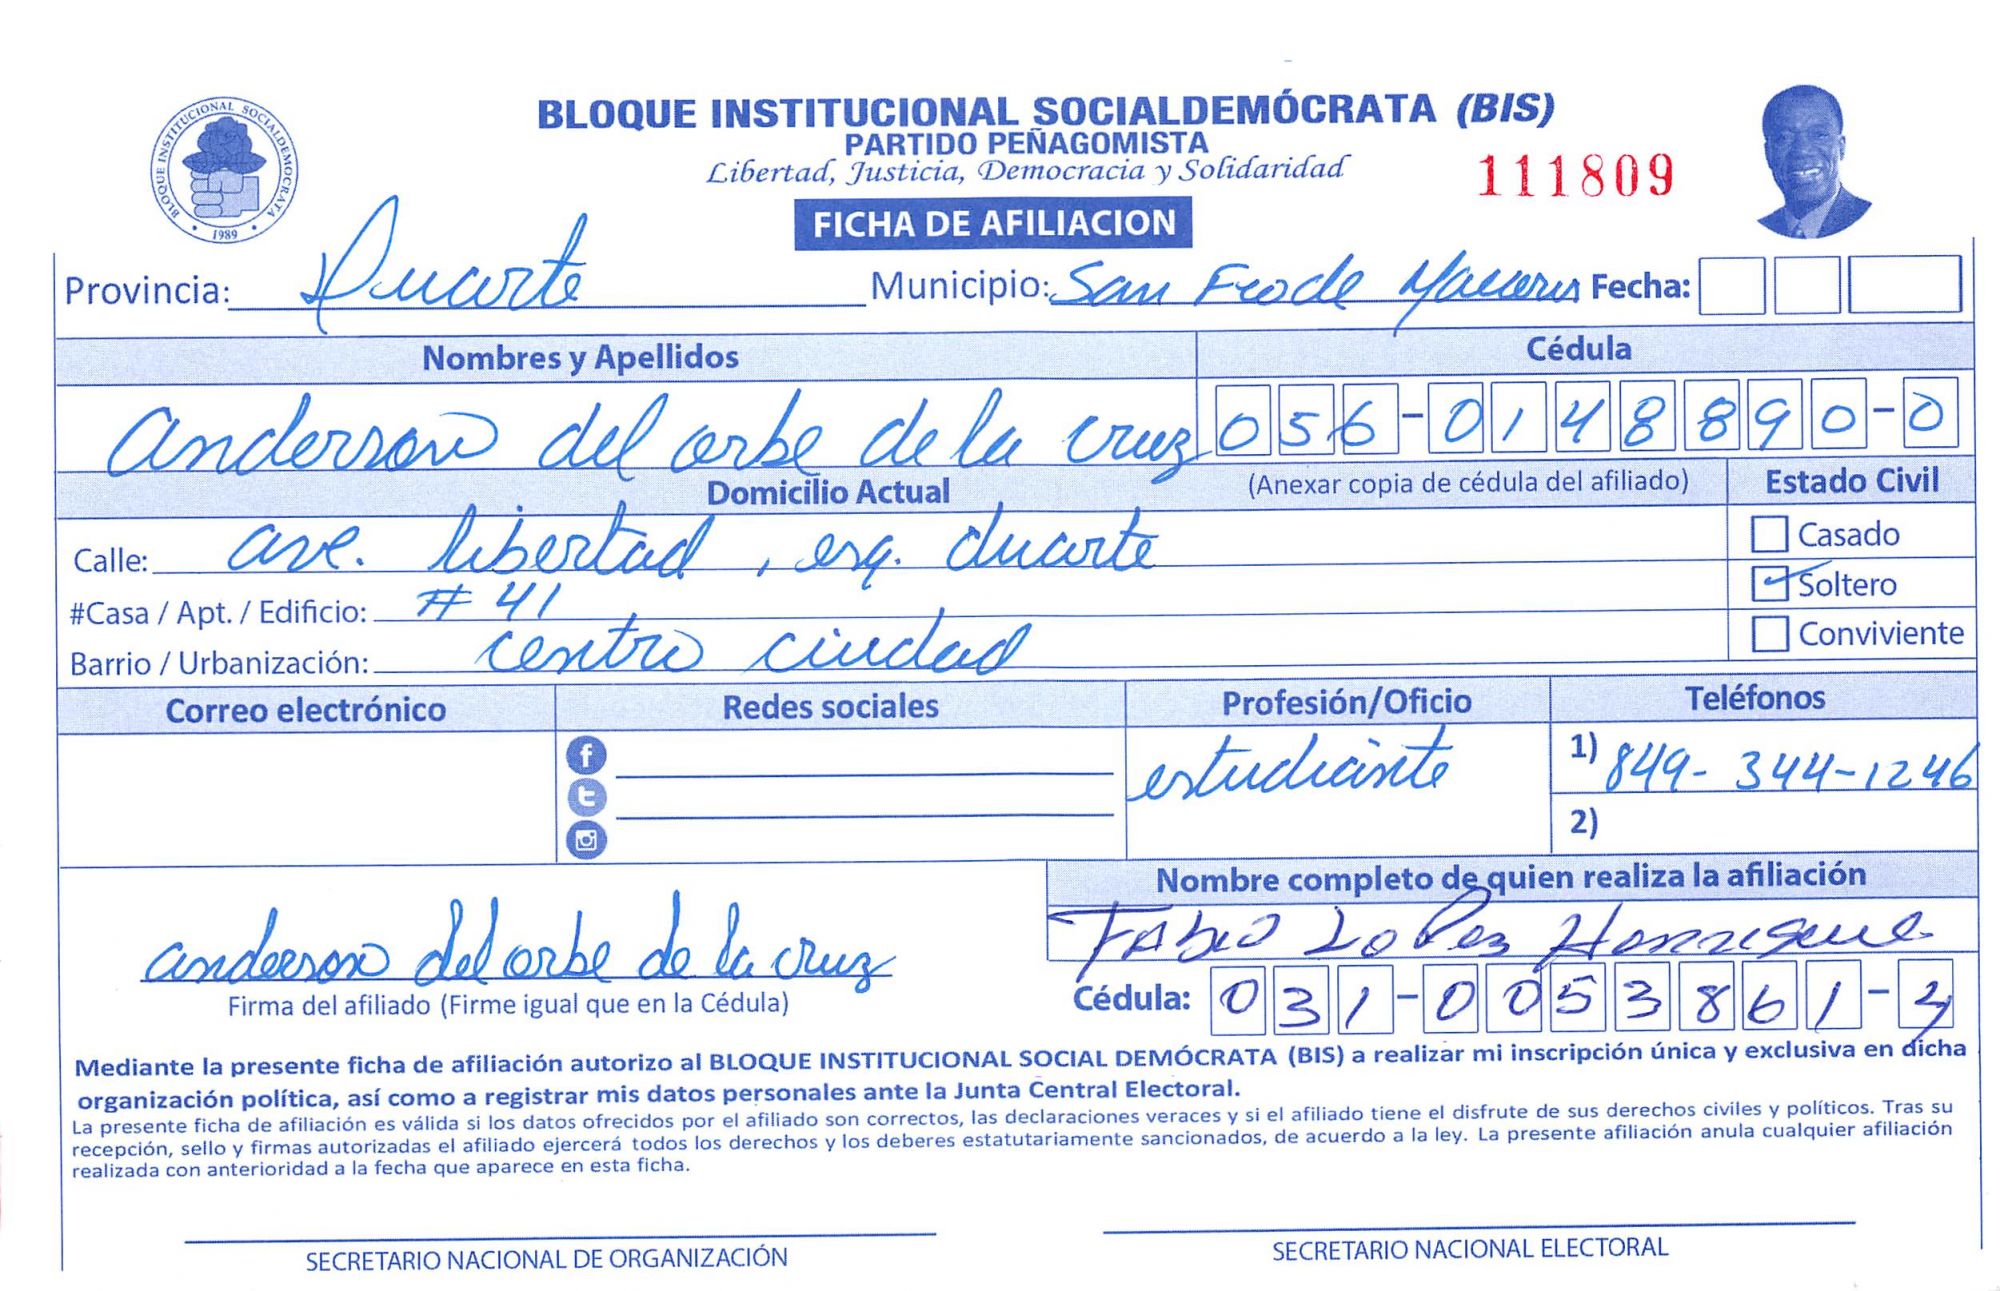 BLOQUE INSTITUCIONAL SOCIALDEMÓCRATA (BIS)
PARTIDO PEÑAGOMISTA
Libertad, Justicia, Democracia y Solidaridad
111809
BLOQUE INSTITUCIONAL SOCIALDEMOCRATA
1989
FICHA DE AFILIACION
Provincia: Duarte Municipio: San Fco de Macoris Fecha:
Nombres y Apellidos Cédula
anderson del orbe de la cruz 056-0148890-0
Domicilio Actual (Anexar copia de cédula del afiliado) Estado Civil
Calle: ave. libertad, esq. duarte Casado
#Casa / Apt. / Edificio: # 41 Soltero
Barrio / Urbanización: centro ciudad Conviviente
Correo electrónico Redes sociales Profesión/Oficio Teléfonos
estudiante 1) 849-344-1246
2)
Nombre completo de quien realiza la afiliación
Fabio Lopez Henrriquez
anderson del orbe de la cruz
Firma del afiliado (Firme igual que en la Cédula) Cédula: 031-0053861-
Mediante la presente ficha de afiliación autorizo al BLOQUE INSTITUCIONAL SOCIAL DEMÓCRATA (BIS) a realizar mi inscripción única y exclusiva en dicha
organización política, así como a registrar mis datos personales ante la Junta Central Electoral.
La presente ficha de afiliación es válida si los datos ofrecidos por el afiliado son correctos, las declaraciones veraces y si el afiliado tiene el disfrute de sus derechos civiles y políticos. Tras su
recepción, sello y firmas autorizadas el afiliado ejercerá todos los derechos y los deberes estatutariamente sancionados, de acuerdo a la ley. La presente afiliación anula cualquier afiliación
realizada con anterioridad a la fecha que aparece en esta ficha.
SECRETARIO NACIONAL DE ORGANIZACIÓN SECRETARIO NACIONAL ELECTORAL